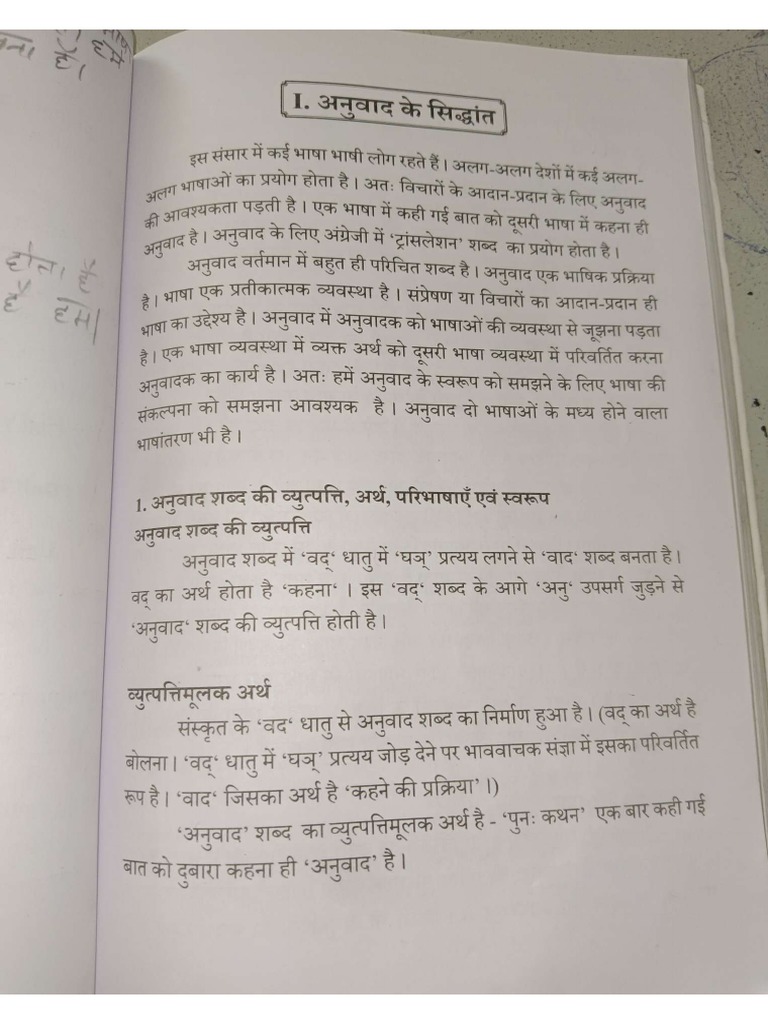 I. अनुवाद के सिद्धांत
इस संसार में कई भाषा भाषी लोग रहते हैं। अलग-अलग देशों में कई अलग-
अलग भाषाओं का प्रयोग होता है। अतः विचारों के आदान-प्रदान के लिए अनुवाद
की आवश्यकता पड़ती है। एक भाषा में कही गई बात को दूसरी भाषा में कहना ही
अनुवाद है। अनुवाद के लिए अंग्रेजी में 'ट्रांसलेशन' शब्द का प्रयोग होता है।
अनुवाद वर्तमान में बहुत ही परिचित शब्द है। अनुवाद एक भाषिक प्रक्रिया
है। भाषा एक प्रतीकात्मक व्यवस्था है। संप्रेषण या विचारों का आदान-प्रदान ही
भाषा का उद्देश्य है। अनुवाद में अनुवादक को भाषाओं की व्यवस्था से जूझना पड़ता
है। एक भाषा व्यवस्था में व्यक्त अर्थ को दूसरी भाषा व्यवस्था में परिवर्तित करना
अनुवादक का कार्य है। अतः हमें अनुवाद के स्वरूप को समझने के लिए भाषा की
संकल्पना को समझना आवश्यक है। अनुवाद दो भाषाओं के मध्य होने वाला
भाषांतरण भी है।
1. अनुवाद शब्द की व्युत्पत्ति, अर्थ, परिभाषाएँ एवं स्वरूप
अनुवाद शब्द की व्युत्पत्ति
अनुवाद शब्द में 'वद्‘ धातु में ‘घञ्’ प्रत्यय लगने से ‘वाद‘ शब्द बनता है।
वद् का अर्थ होता है ‘कहना‘ । इस ‘वद्‘ शब्द के आगे ‘अनु‘ उपसर्ग जुड़ने से
‘अनुवाद‘ शब्द की व्युत्पत्ति होती है।
व्युत्पत्तिमूलक अर्थ
संस्कृत के ‘वद‘ धातु से अनुवाद शब्द का निर्माण हुआ है। (वद् का अर्थ है
बोलना। ‘वद्‘ धातु में ‘घञ्’ प्रत्यय जोड़ देने पर भाववाचक संज्ञा में इसका परिवर्तित
रूप है। ‘वाद‘ जिसका अर्थ है ‘कहने की प्रक्रिया’।)
‘अनुवाद’ शब्द का व्युत्पत्तिमूलक अर्थ है - ‘पुनः कथन’ एक बार कही गई
बात को दुबारा कहना ही ‘अनुवाद’ है।
होना
है हम